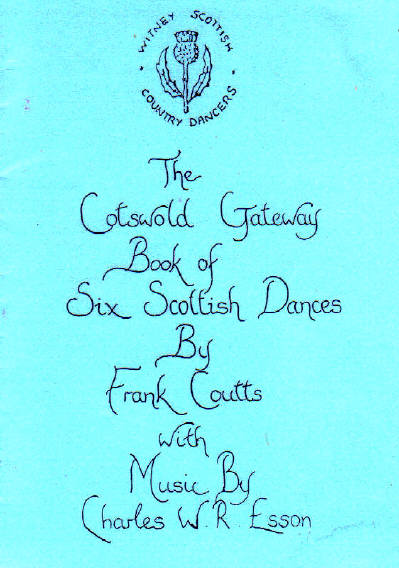 WITNEY SCOTTISH
COUNTRY DANCERS
The
Cotswold Gateway
Book of
Six Scottish Dances
By
Frank Coutts
with
Music By
Charles W. R. Esson